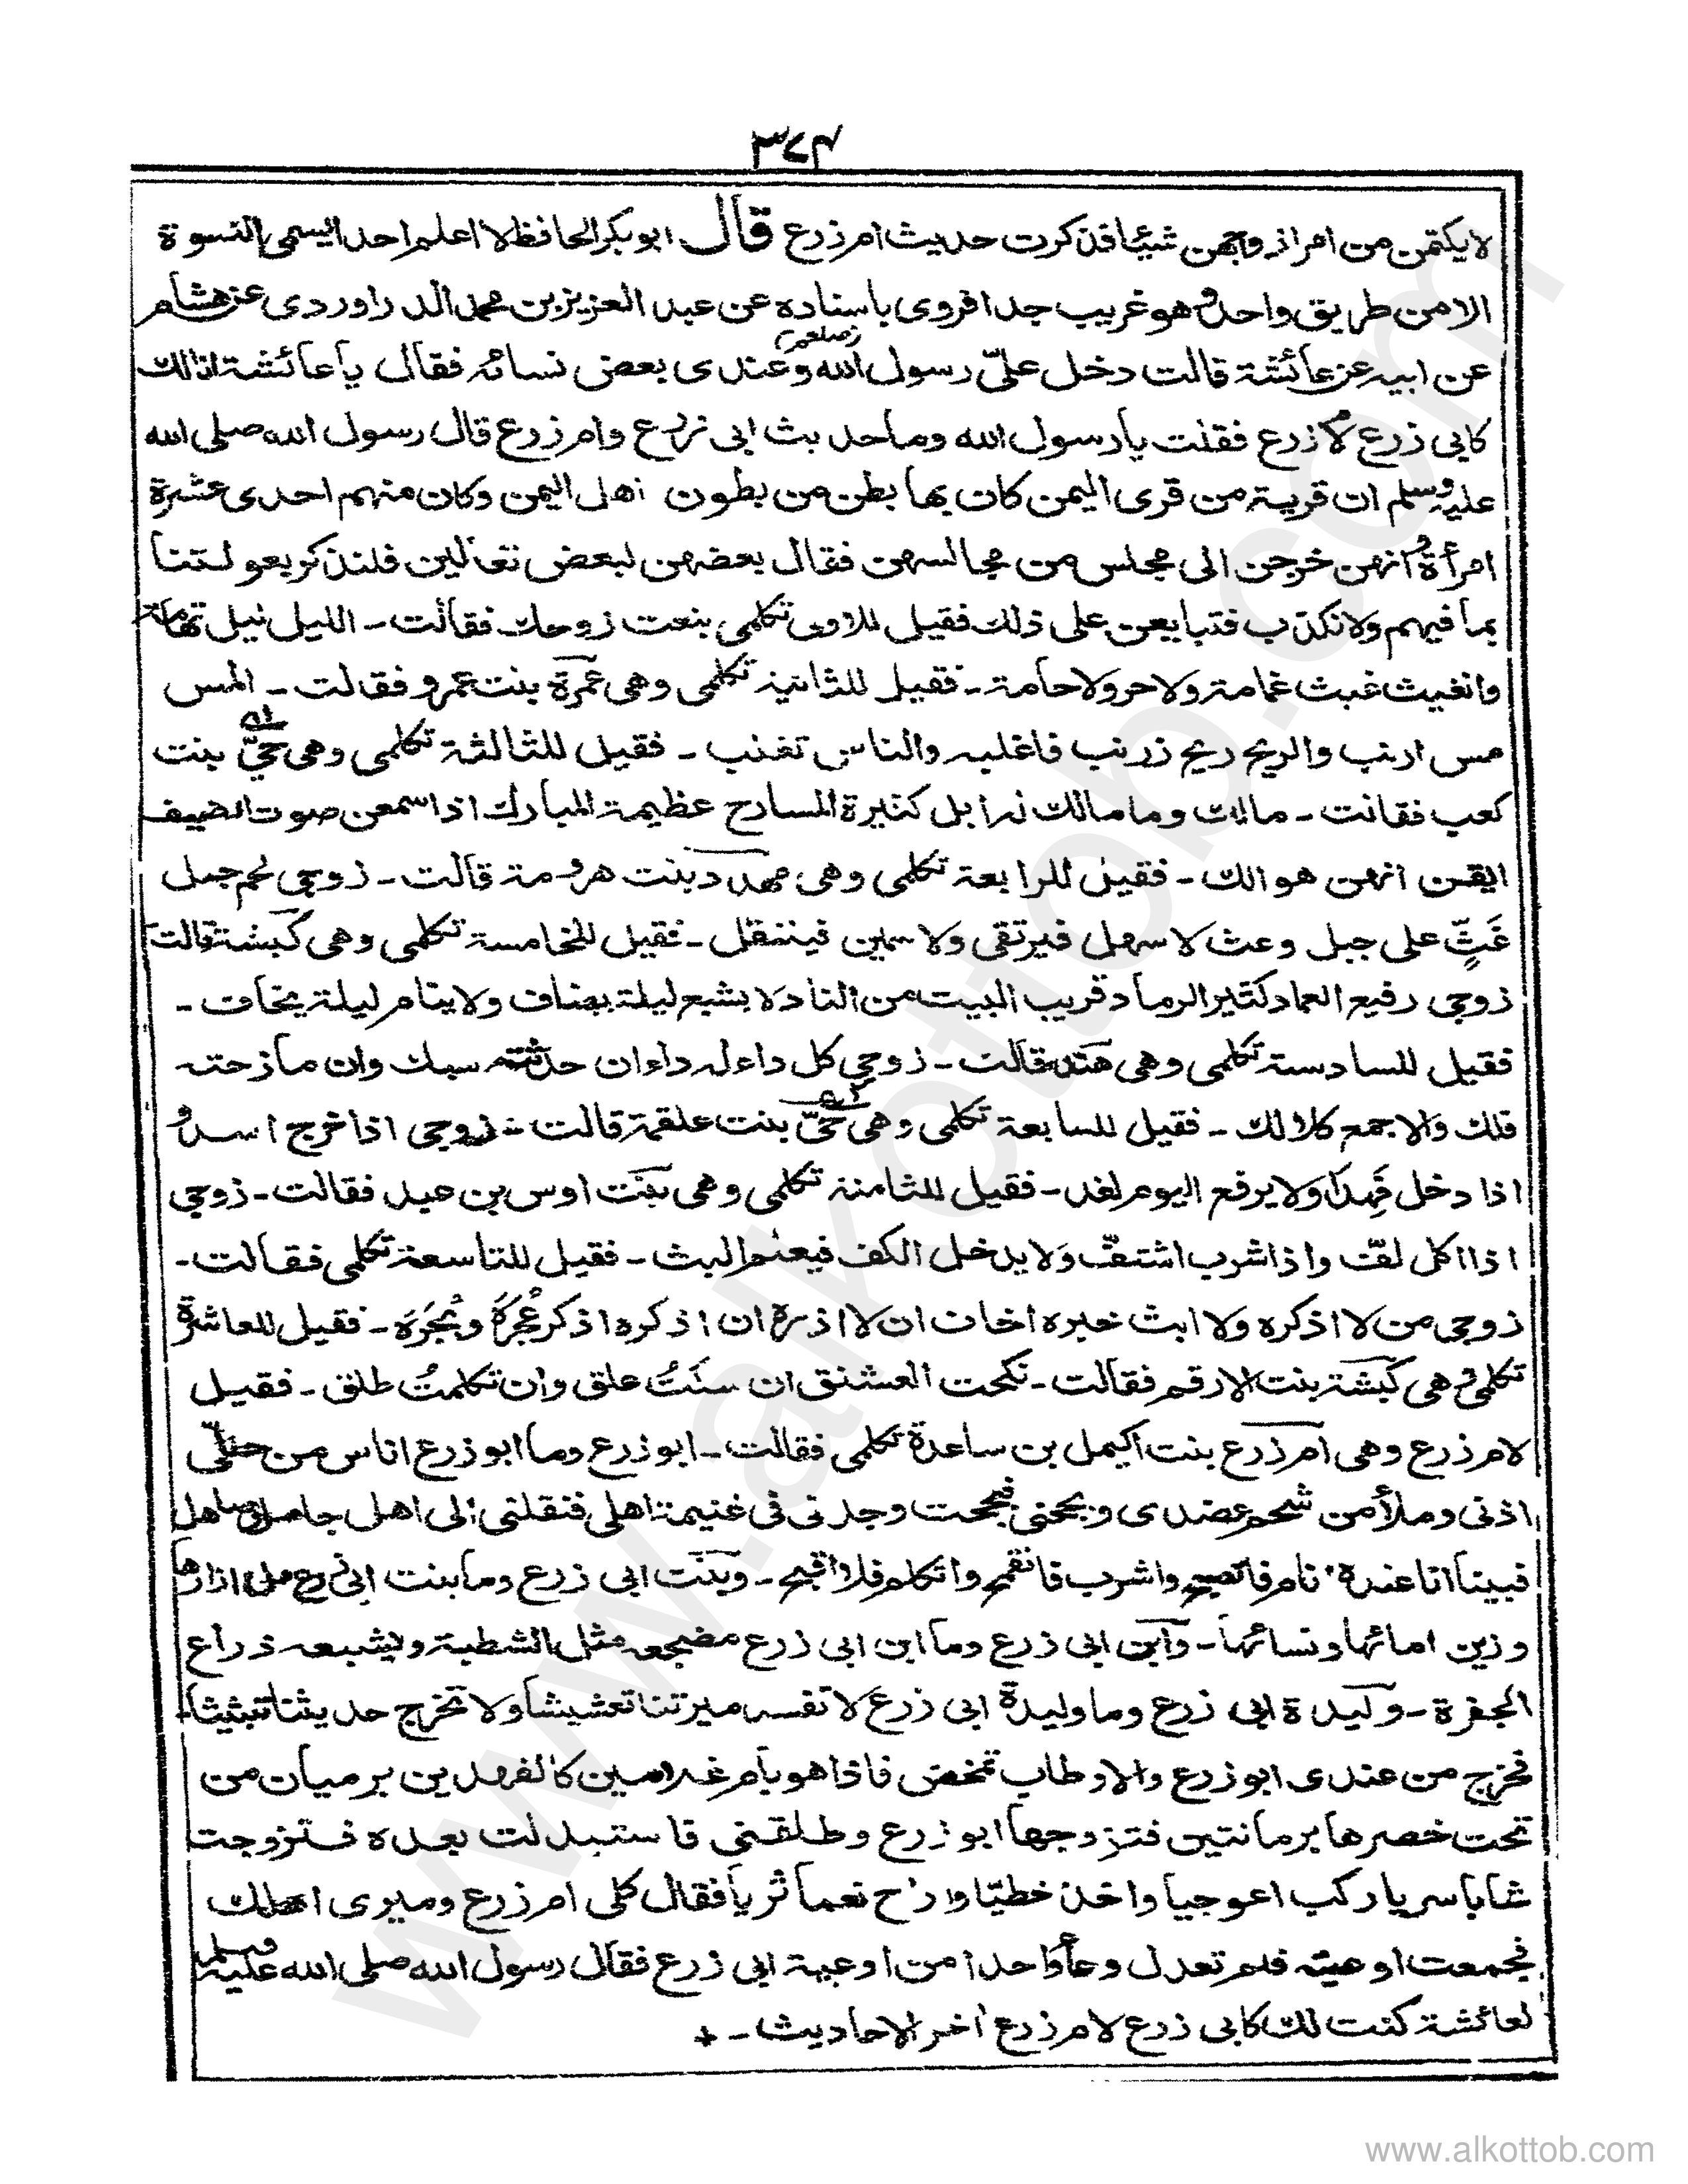 ٣٧٣
لا يكتمن من امر ازواجهن شيئا فذكرت حديث ام زرع قال ابو بكر الحافظ لا اعلم احدا يسمى النسوة
الا من طريق واحد وهو غريب جدا فروى باسناده عن عبد العزيز بن محمد الدراوردى عن هشام
عن ابيه عن عائشة قالت دخل علىّ رسول الله صلعم وعندى بعض نسائه فقال يا عائشة انا لك
كابى زرع لام زرع فقلت يا رسول الله وما حديث ابى زرع وام زرع قال رسول الله صلى الله
عليه وسلم ان قرية من قرى اليمن كان بها بطن من بطون اهل اليمن وكان منهم احدى عشرة
امرأة وانهن خرجن الى مجلس من مجالسهن فقال بعضهن لبعض تعالين فلنذكر بعولتنا
بما فيهم ولا نكذب فتبايعن على ذلك فقيل للاولى تكلمى بنعت زوجك فقالت - الليل ليل تهامة
والغيث غيث غمامة ولا حر ولا خامة - فقيل للثانية تكلمى وهى عمرة بنت عمرو فقالت - المس
مس ارنب والريح ريح زرنب فاغلبه والناس تغلب - فقيل للثالثة تكلمى وهى حُبّى بنت
كعب فقالت - مالك وما مالك له ابل كثيرة المسارح عظيمة المبارك اذا سمعن صوت الضيف
ايقن انهن هوالك - فقيل للرابعة تكلمى وهى مهدد بنت هرومة قالت - زوجى لحم جمل
غَثٍّ على جبل وعث لا سهل فيرتقى ولا سمين فينتقل - فقيل للخامسة تكلمى وهى كبشة قالت
زوجى رفيع العماد كثير الرماد قريب البيت من الناد لا يشبع ليلة يضاف ولا ينام ليلة يخاف -
فقيل للسادسة تكلمى وهى هند قالت - زوجى كل داء له داء ان حدثته سبك وان مازحته
فلك والا جمع كلا لك - فقيل للسابعة تكلمى وهى حُبّى بنت علقمة قالت - زوجى اذا خرج اسد و
اذا دخل فَهِد ولا يرفع اليوم لغد - فقيل للثامنة تكلمى وهى بنت اوس بن عبد فقالت - زوجى
اذا اكل لفّ واذا شرب اشتفّ ولا يدخل الكف فيعلم البث - فقيل للتاسعة تكلمى فقالت -
زوجى من لا اذكره ولا ابث خبره اخاف ان لا اذره ان اذكره اذكر عُجَرَه وبُجَرَه - فقيل للعاشرة
تكلمى وهى كبشة بنت الارقم فقالت - نكحت العشنق ان سكتُ علق وان تكلمتُ طلق - فقيل
لام زرع وهى ام زرع بنت اكيمل بن ساعدة تكلمى فقالت - ابو زرع وما ابو زرع اناس من حلى
اذنى وملأ من شحم عضدى وبجحنى فبجحت وجدنى فى غنيمة اهلى فنقلنى الى اهل جامل وصاهل
فبينا انا عنده انام فاتصبح واشرب فاتقمح واتكلم فلا اقبح - وبنت ابى زرع وما بنت ابى زرع ملء ازارها
وزين امائها ونسائها - وابن ابى زرع وما ابن ابى زرع مضجعه مثل الشطبة ويشبعه ذراع
الجفرة - ووليدة ابى زرع وما وليدة ابى زرع لا تفسد ميرتنا تعشيشا ولا تخرج حديثنا تبثيثا -
فخرج من عندى ابو زرع والاوطاب تمخض فاذا هو بام غلامين كالفهدين يرميان من
تحت خصرها برمانتين فتزوجها ابو زرع وطلقنى فاستبدلت بعده فتزوجت
شابا سريا ركب اعوجيا واخذ خطيّا واراح نعما ثريا فقال كلى ام زرع وميرى اهلك
فجمعت اوعيته فلم تعدل وعاء واحدا من اوعية ابى زرع فقال رسول الله صلى الله عليه وسلم
لعائشة كنت لك كابى زرع لام زرع آخر الاحاديث - +
www.alkottob.com
www.alkottob.com